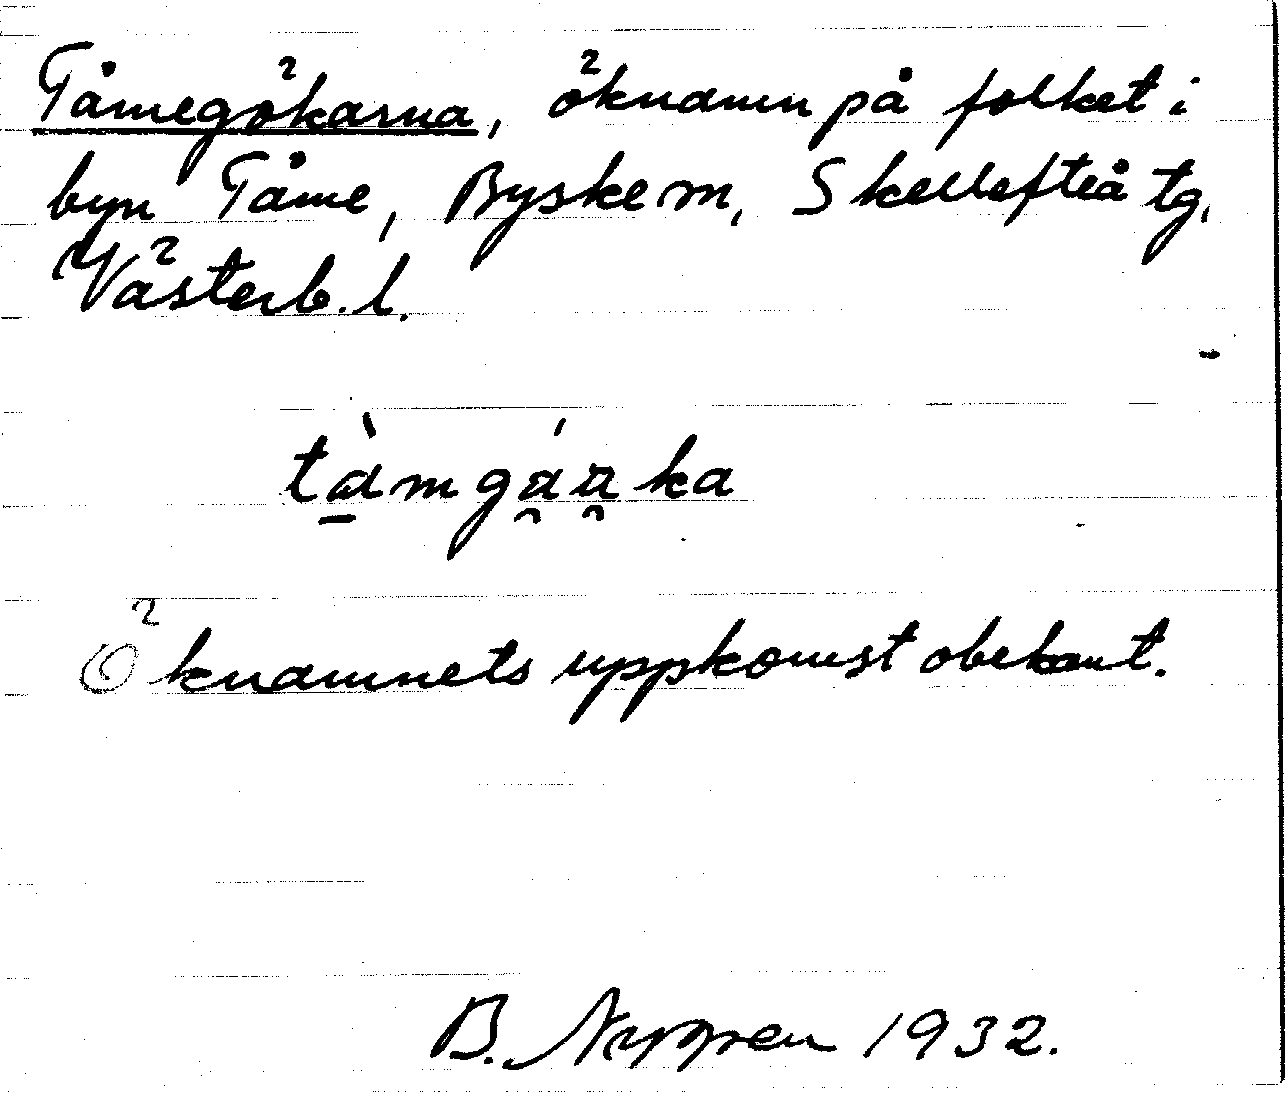 Tåmegökarna, öknamn på folket i
byn Tåme, Byske m, Skellefteå tg,
Västerb. l.
tàmgáaka
Öknamnets uppkomst obekant.
B. Nygren 1932.